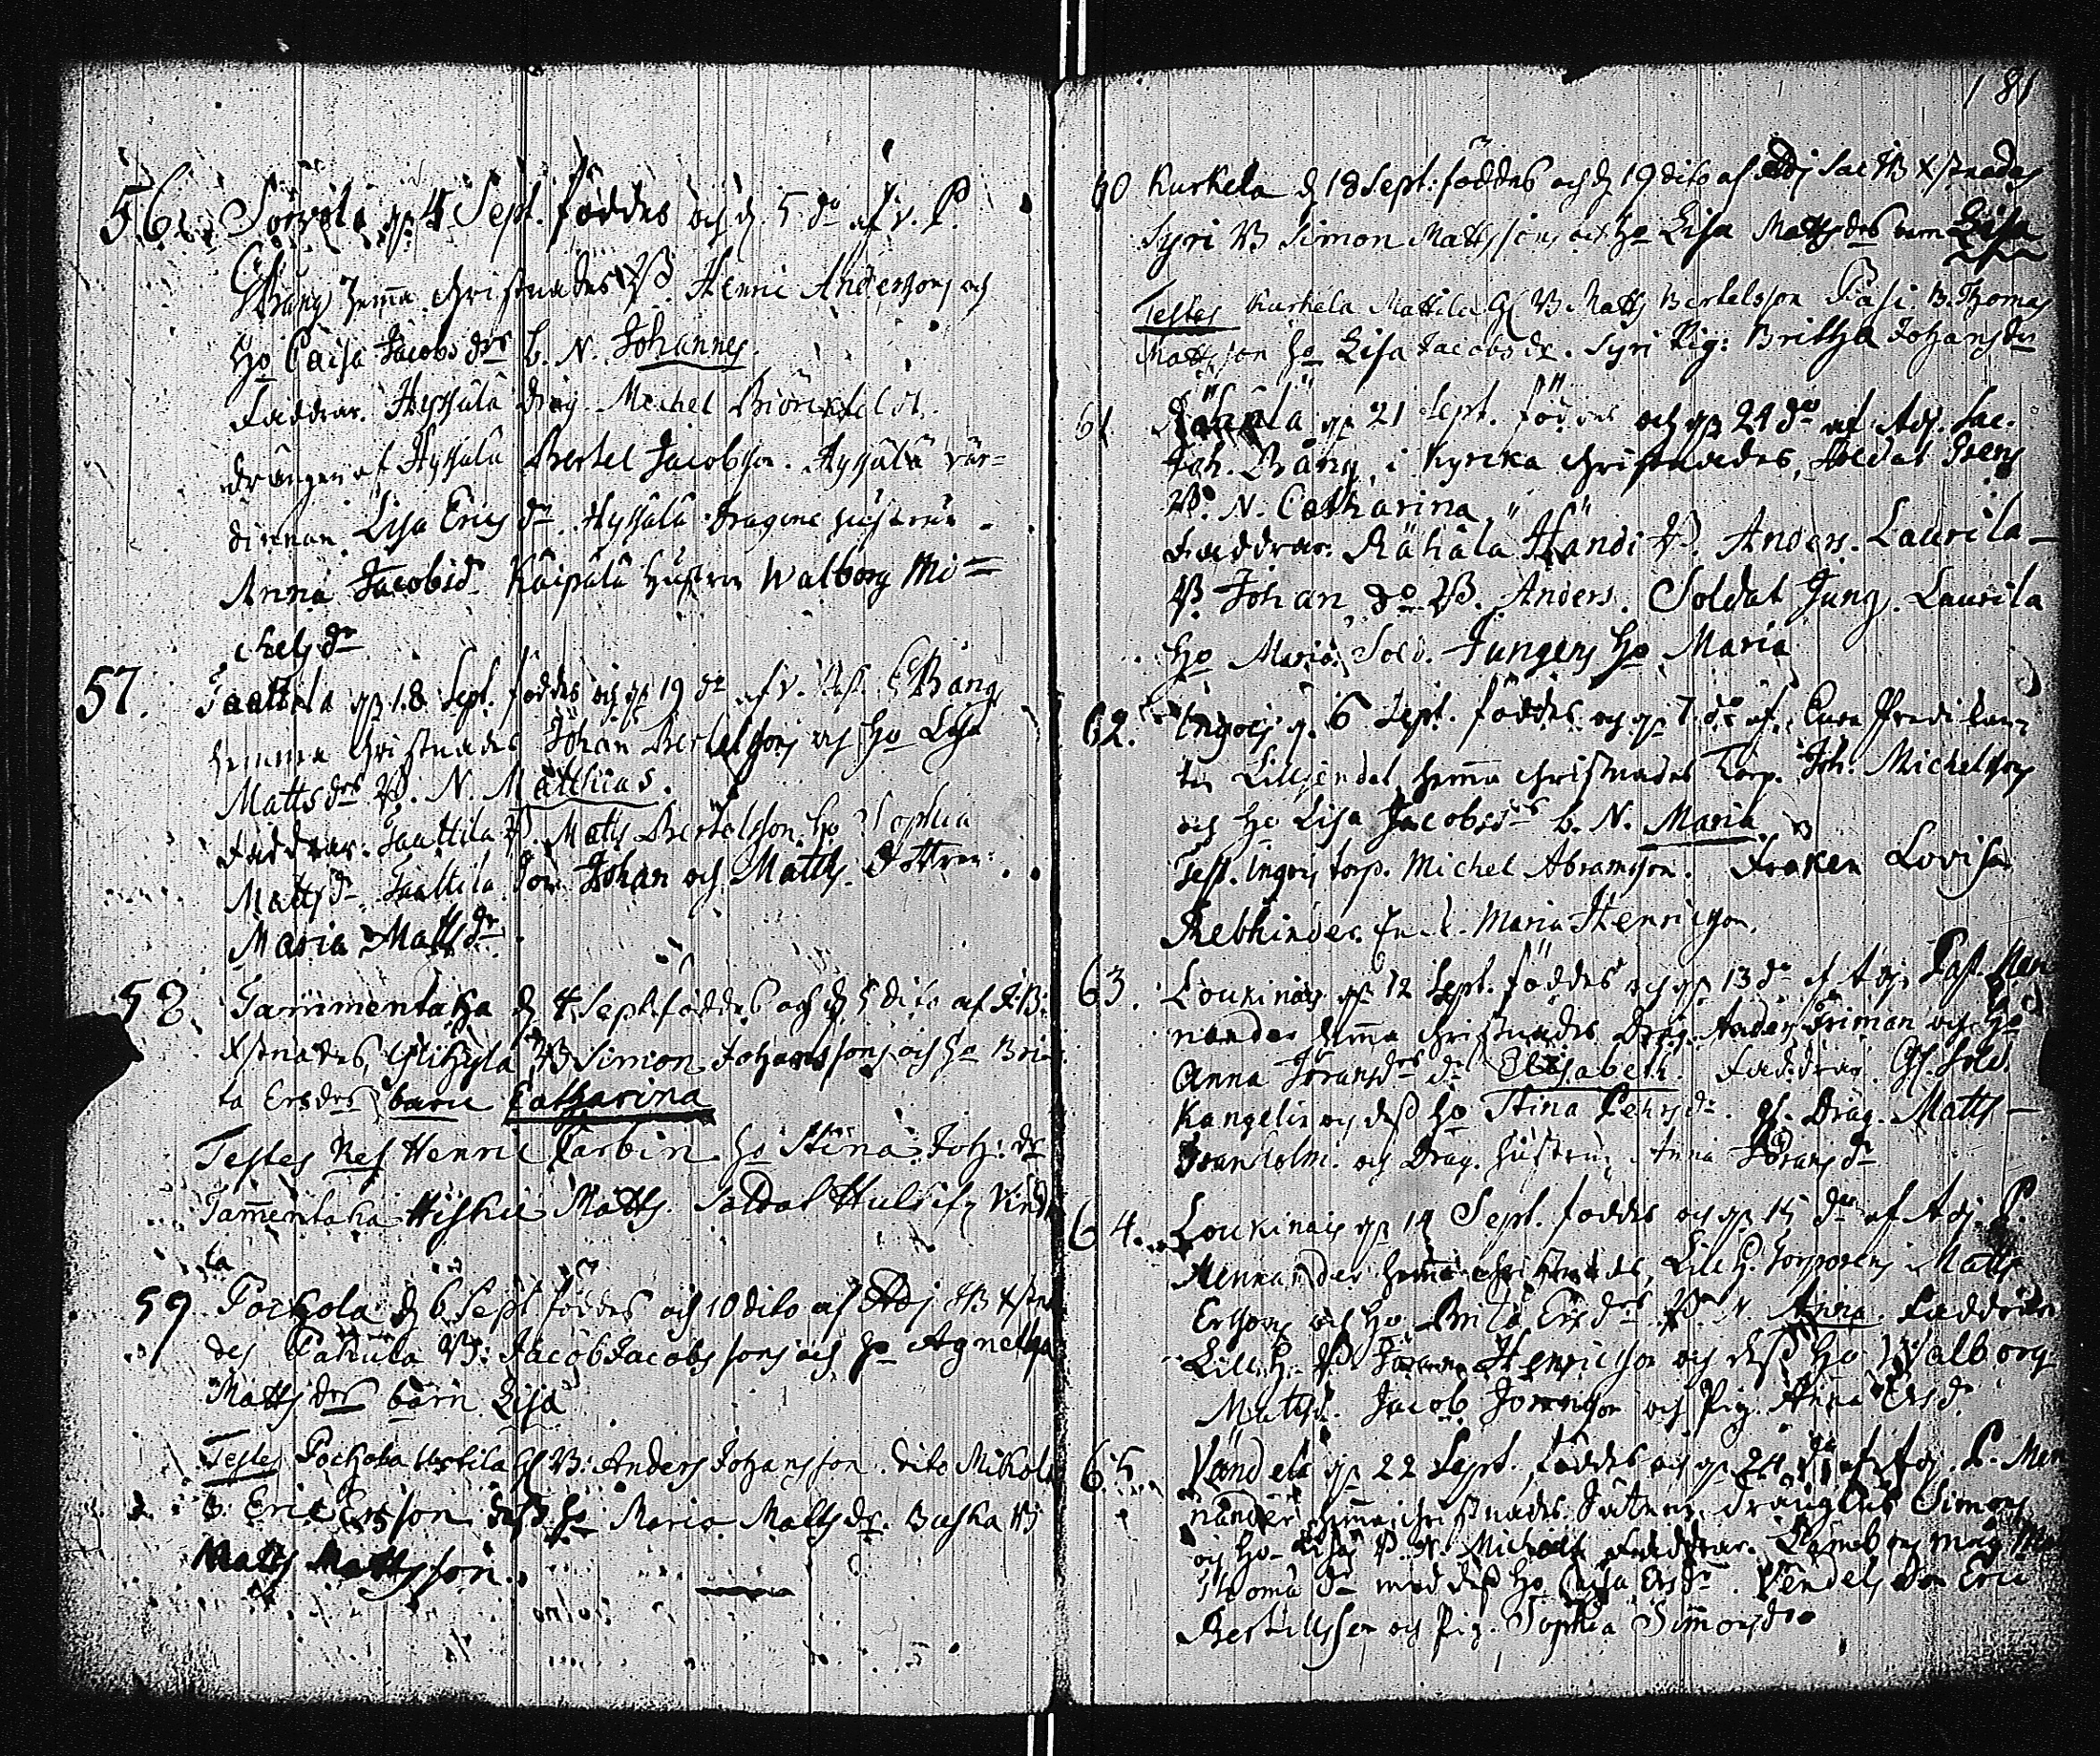 56. Sorvola 4 Sept. föddes och d. 5 do af v. P.
Bång hema christnades B. Henric Anderssons och
Ho Caisa Jacobs drs b. N. Johannes.
Faddrar. Hyssälä Drag. Michel Biörckfelt.
drängen af Hyssälä Bertel Jacobsson. Hyssälä vär-
dinnan Lisa Erics dr. Hyssälä Dragone hustrun
Anna Jacobsd. Kaipala hustrun Walborg Mi=
chelsdr
57. Taattila 18 Sept. föddes och 19 do af v. Past. Bång
hemma christnades Johan Bertelssons och Ho Lisa
Mattsdrs B. N. Matthias.
Faddrar. Taattila B. Matts Bertelsson Ho Sophia
Mattsdr. Taattila Son Johan och Matts. Dottren:
Maria Mattsdr.
58. Tammentaha d 4 Sept. föddes och d 5 dito af J: B:
Xstnades, B Simon Johanssons och Ho Bri-
ta Ersdrs barn Catharina
Testes Henric Karbin Ho Stina Joh: dr
Tamentaka Hiskie Matts. Soldat
la
59 Pockola d 6 Sept föddes och 10 dito af Adj JB Xstna
des Pahula B: Jacob Jacobssons och Ho Agnetha
Mattsdrs barn Lisa
Testes Pockola Uotila B: Anders Johansson. dito Mikola
B. Eric Ersson dess Ho Maria Mattsdr. Buska
Matts Mattsson.
181
60 Kurkela d 18 Sept: föddes och d 19 dito af Adj Sac JB Xstnades
Syri B Simon Mattssons och Ho Lisa Mattsdrs barn Lisa
Testes Kurkela Mattila B Matts Bertelsson Pasi B. Thomas
Mattsson Ho Lisa Jacobsdr. Syri Pig: Britha Johansdr
61 Rähälä 21 Sept. föddes och 24 do af Adj. Sac.
Joh. Bång i Kyrcka christnades, Soldat
B. N. Catharina
Faddrar. Rähälä Händi B. Anders. Laurila
B. Johan do B. Anders. Soldat Jung. Laurila
Ho Maria. Sold. Jungens Ho Maria
62. Ingois 6 Sept. föddes och 7 do af Predikan-
ten Lilljendal hema christnades Torp. Joh. Michelssons
och Ho Lisa Jacobsdrs b. N. Maria
Test. Ingois torp. Michel Abramsson. Froken Lovisa
Rebbinder. Maria Henricsson.
63. Loukinais 12 Sept. föddes och 13 do af Adj. Past. Men
nander hema christnades Drag. Anders Friman och Ho
Anna Jöransdrs dr Elisabeth. Faddrar. Sold.
Kangelin och dess Ho Stina Pehrsdr. Drag. Matts
Granholm. och Drag. hustru Anna Jöransdr
64. Loukinais 14 Sept. föddes och 15 do af Adj. P.
Mennander hema christnades, Lill H. Torparens Matts
Erssons och Ho Brita Ersdrs B. N. Anna. Faddrar
Lill H. B. Henricsson och dess Ho Walborg
Mattsdr. Jacob och Pig. Anna Ersdr
65. Vändelä 22 Sept. föddes och 24 do af Adj. P. Men
nander hema christnades Simons
och Ho Lisas B. N. Michael Faddrar.
Thoma med dess Ho Caisa Ersdr. Vendels Son Eric
Bertillsson och Pig. Sophia Simonsdr